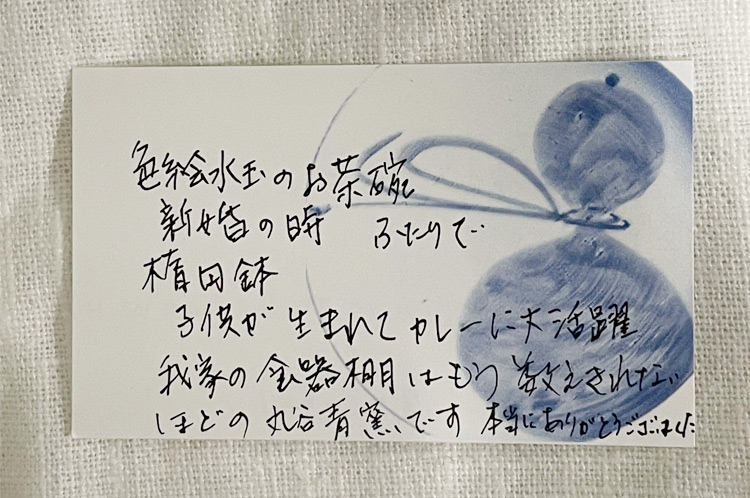 色絵水玉のお茶碗
新婚の時 ふたりで
楕円鉢
子供が生まれてカレーに大活躍
我家の食器棚はもう数えきれない
ほどの九谷青窯です 本当にありがとうございました